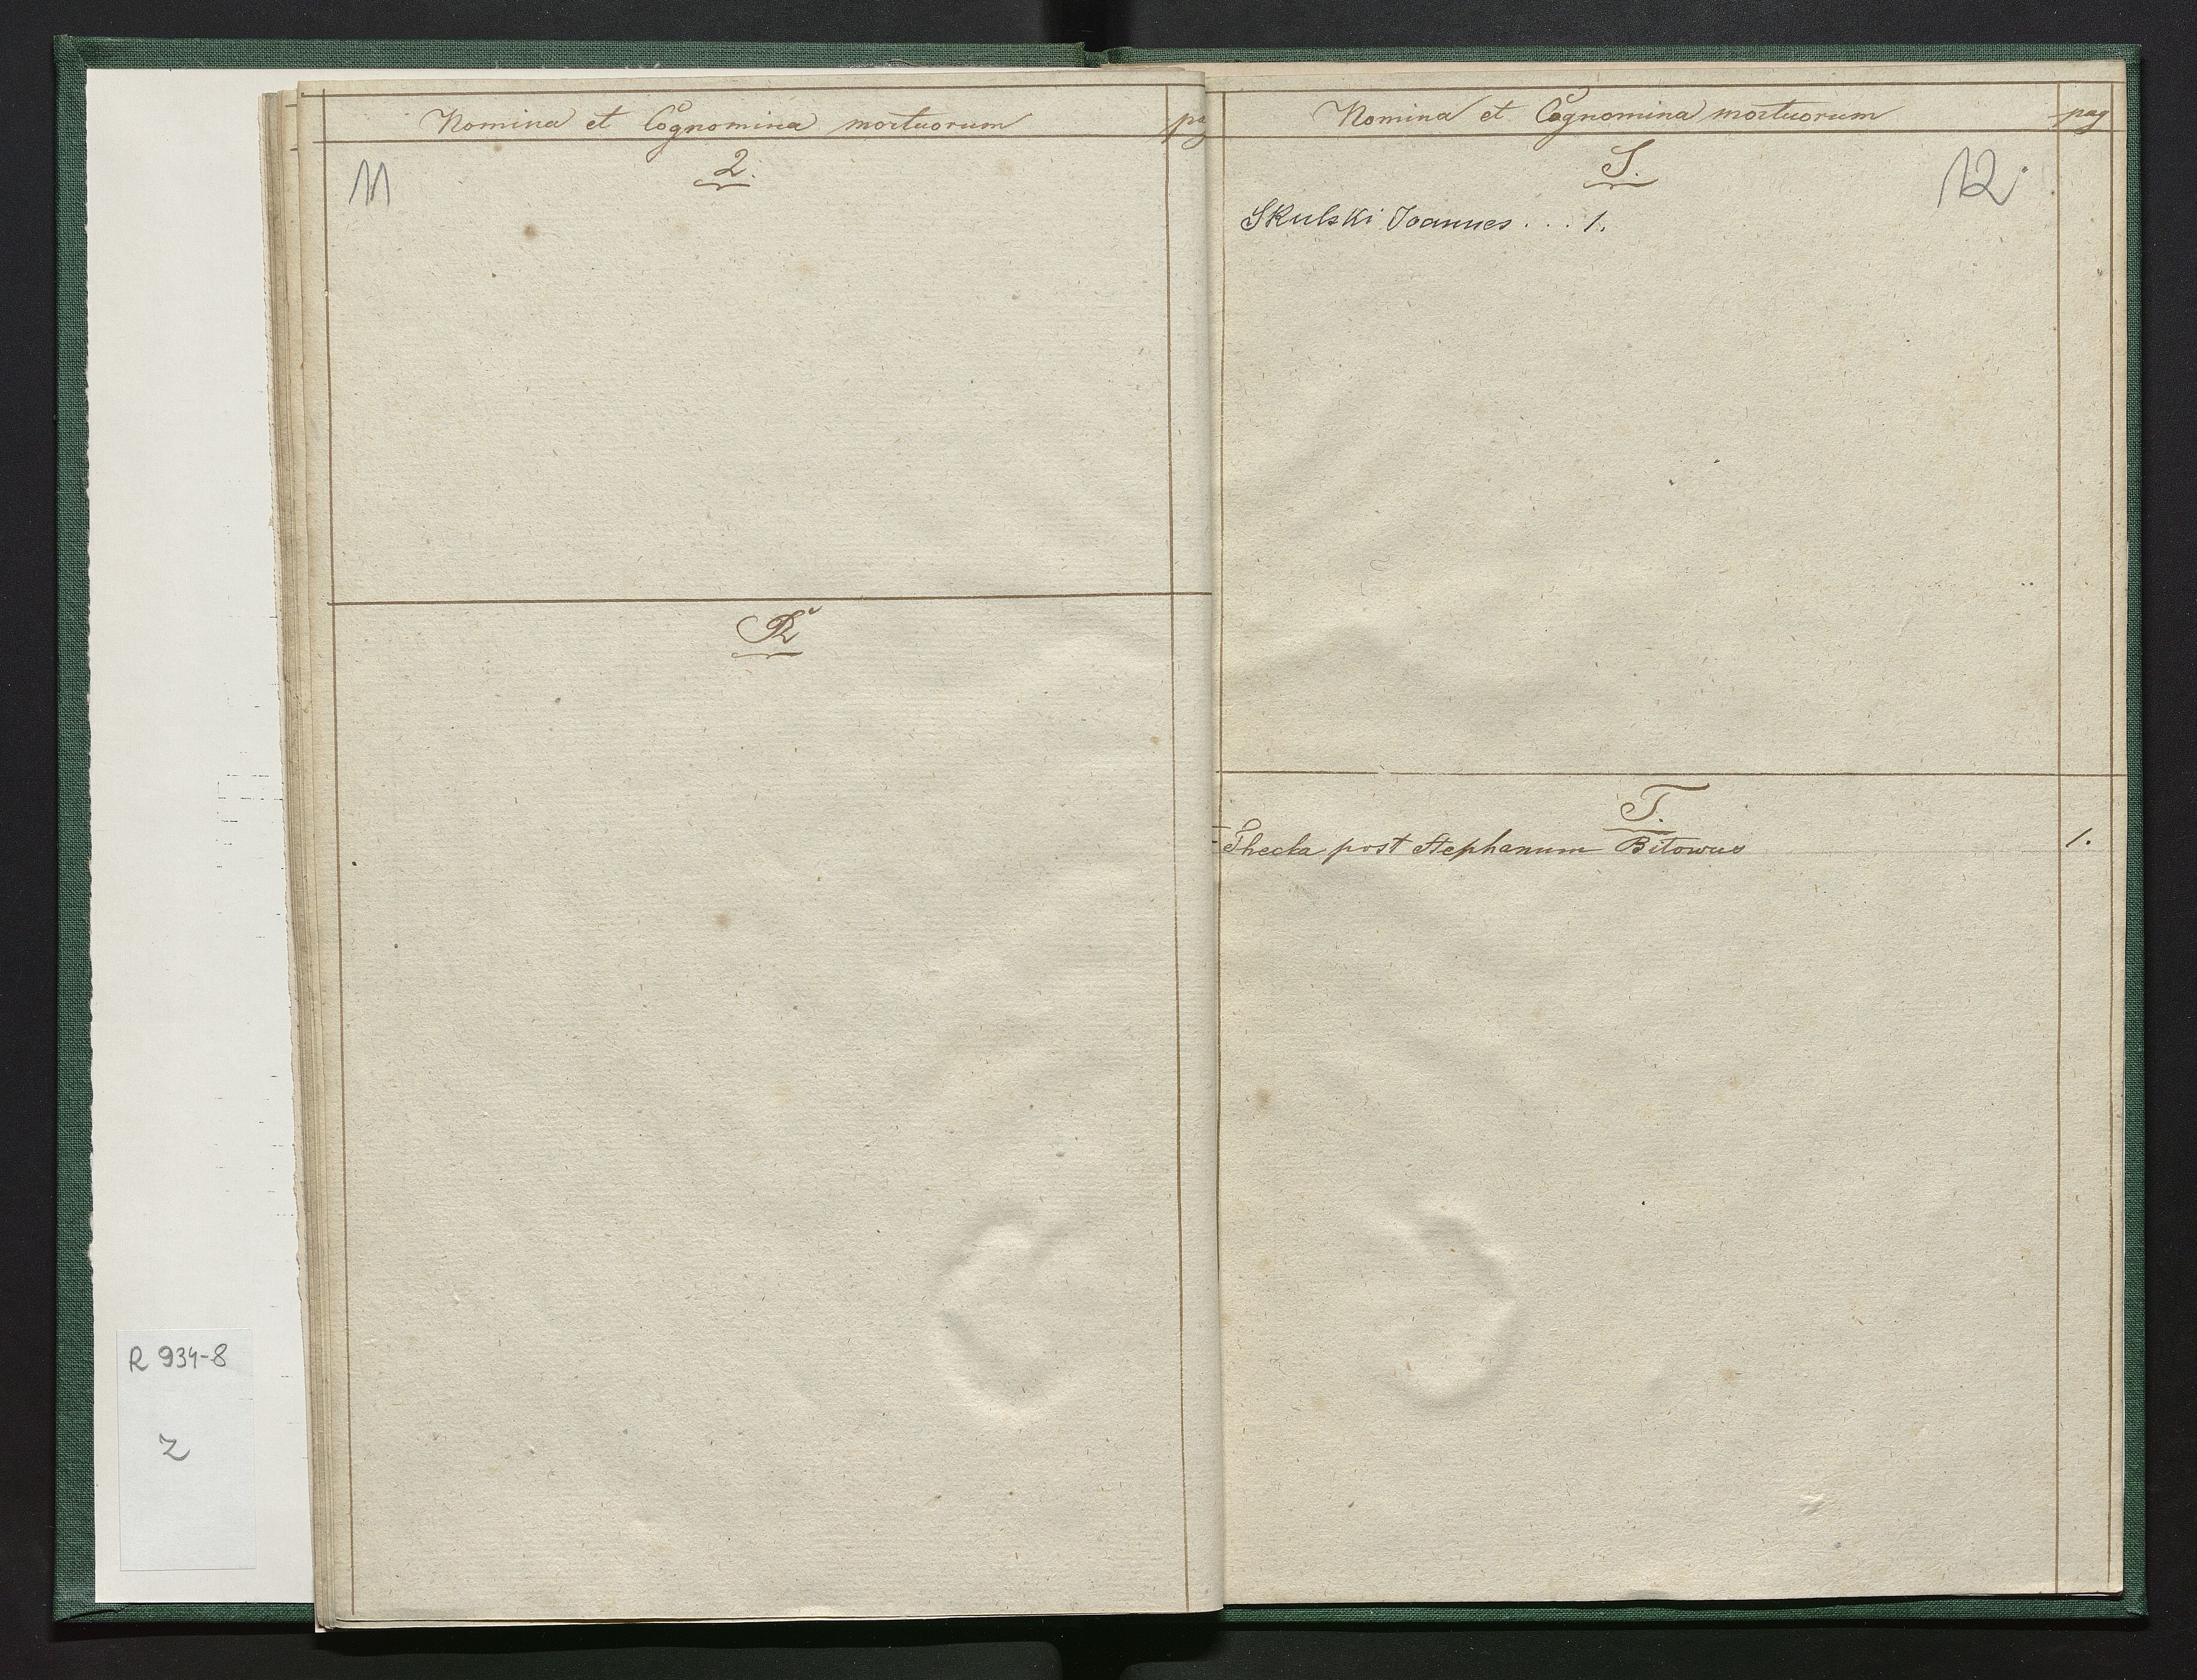 Nomina et Cognomina mortuorum pag
11
Q.
R
R 934-8
2
Nomina et Cognomina mortuorum pag
12
S.
Skulski Joannes . . . 1.
T.
Thecla post Stephanum Bitowus 1.